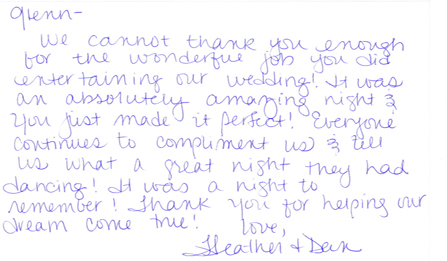 Glenn-
We cannot thank you enough
for the wonderful job you did
entertaining our wedding! It was
an absolutely amazing night &
you just made it perfect! Everyone
continues to compliment us & tell
us what a great night they had
dancing! It was a night to
remember! Thank you for helping our
dream come true!
Love,
Heather & Dan